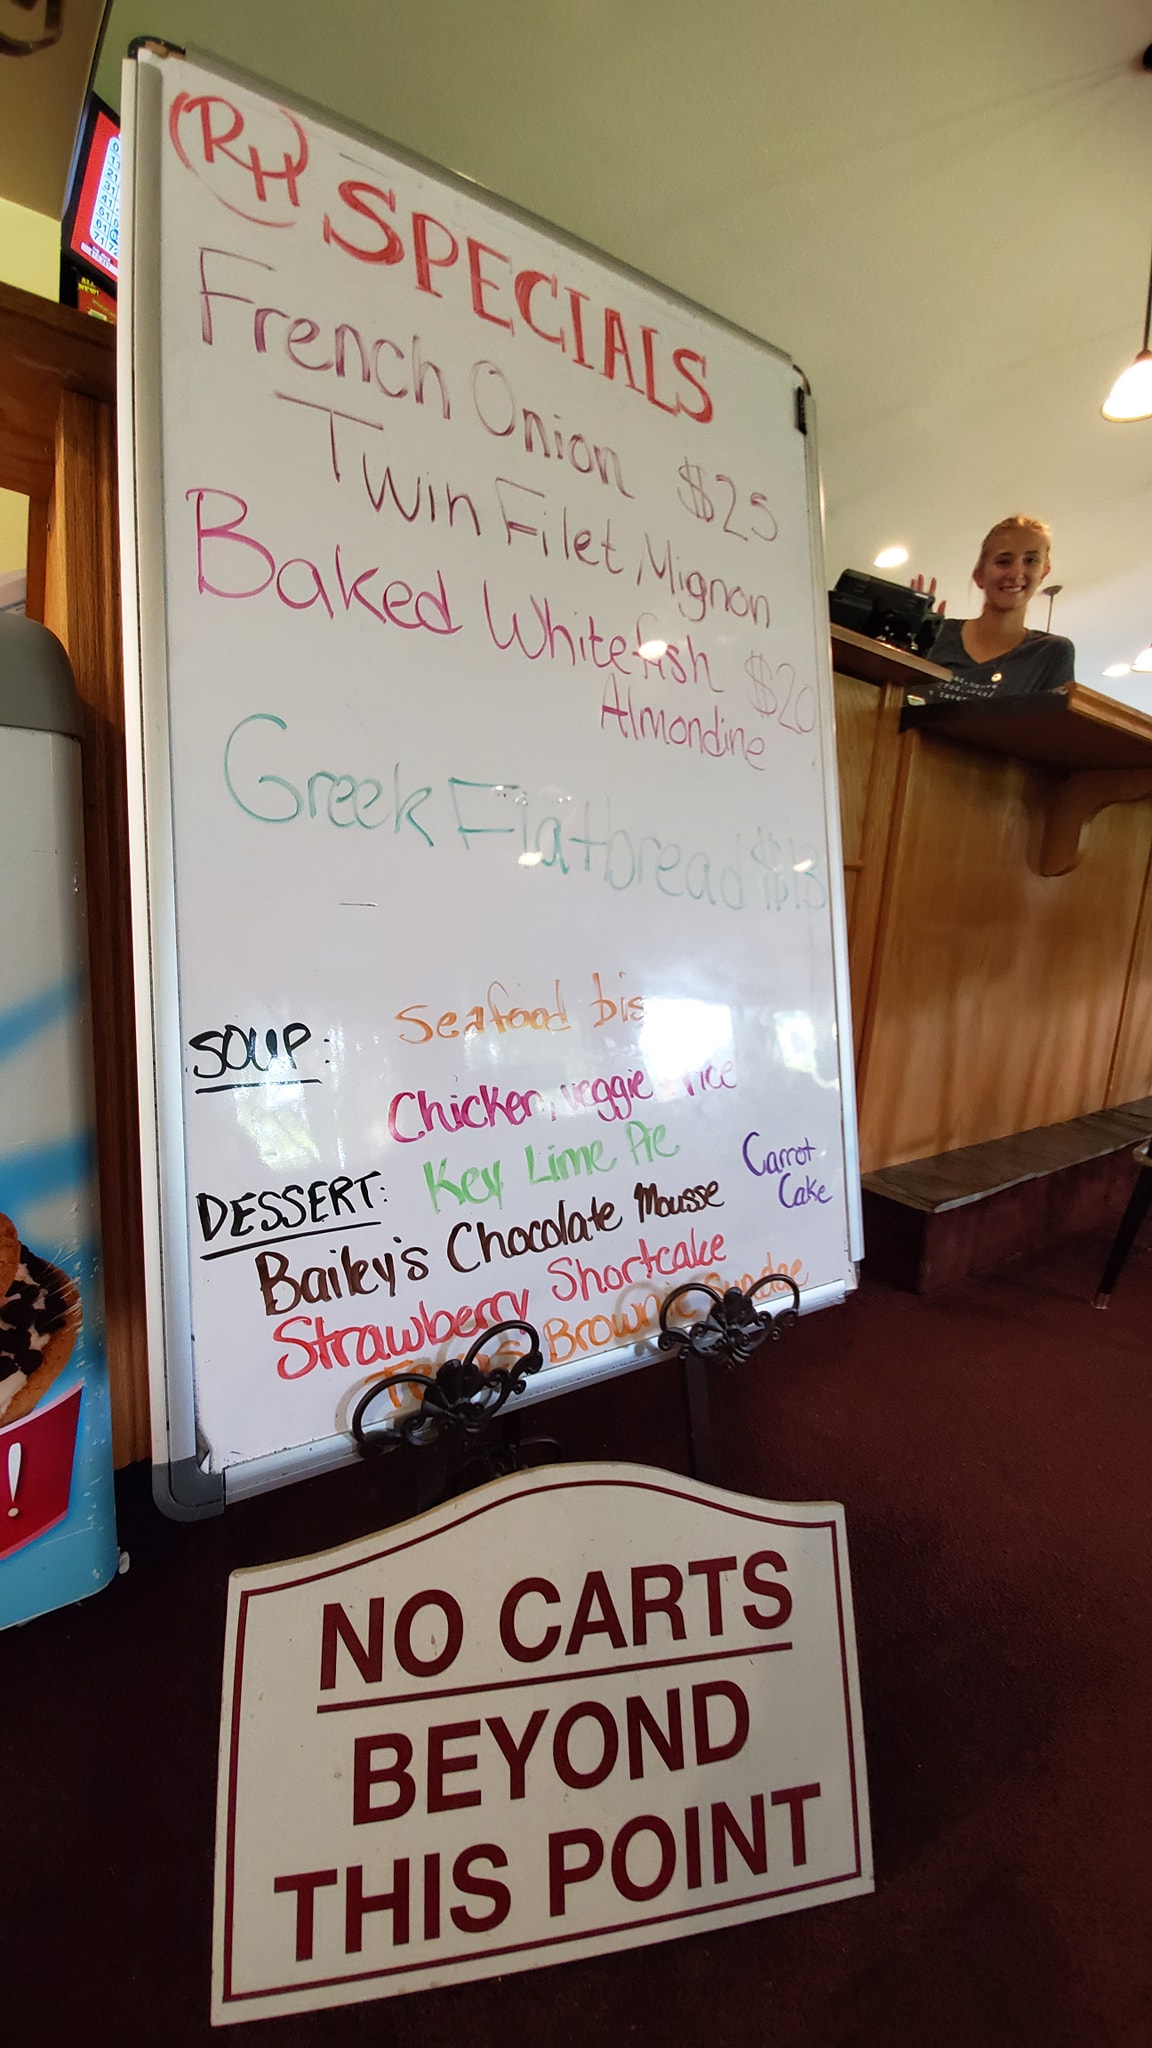 RH
SPECIALS
French Onion $25
Twin Filet Mignon
Baked Whitefish $20
Almondine
Greek Flatbread $13
SOUP: Seafood bis
Chicken, veggie rice
DESSERT: Key Lime Pie
Carrot
Cake
Bailey's Chocolate Mousse
Strawberry Shortcake
Brownie Sundae
NO CARTS
BEYOND
THIS POINT
!